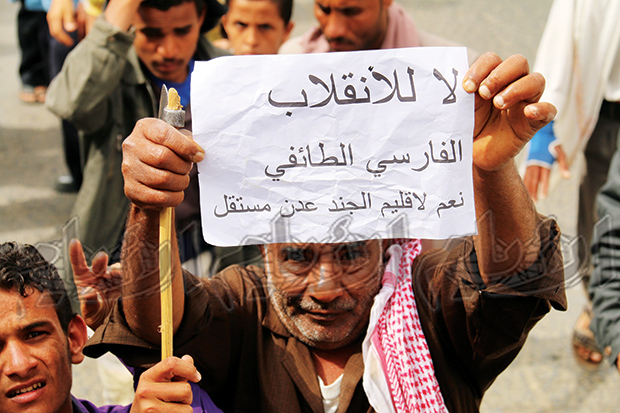 لا للأنقلاب
الفارسي الطائفي
نعم لاقليم الجند عدن مستقل